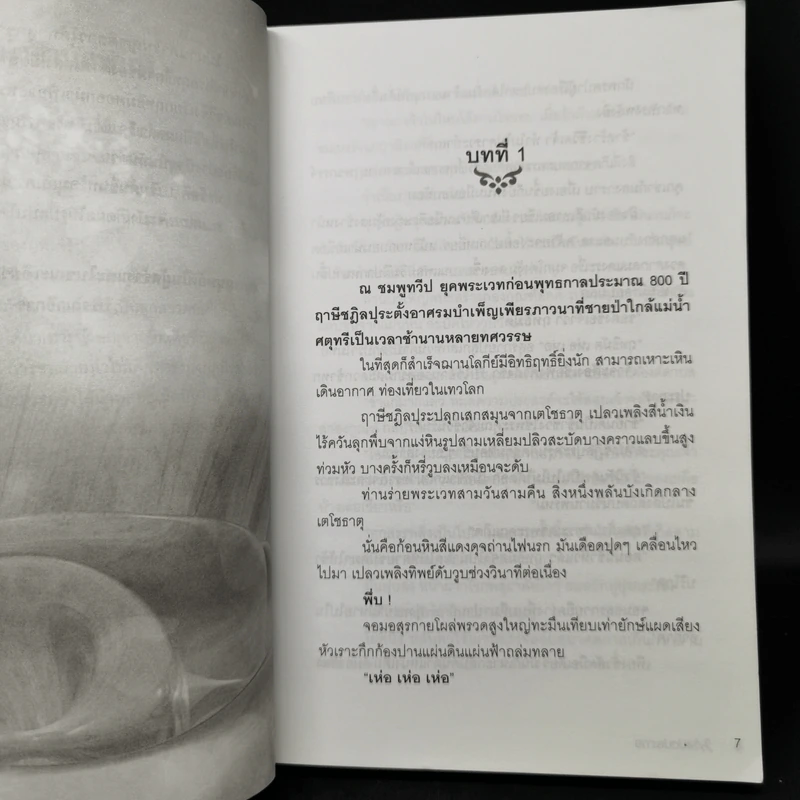 บทที่ 1
ณ ชมพูทวีป ยุคพระเวทก่อนพุทธกาลประมาณ 800 ปี
ฤาษีชฎิลปุระตั้งอาศรมบำเพ็ญเพียรภาวนาที่ชายป่าใกล้แม่น้ำ
ศตุทรีเป็นเวลาช้านานหลายทศวรรษ
ในที่สุดก็สำเร็จฌานโลกีย์มีอิทธิฤทธิ์ยิ่งนัก สามารถเหาะเหิน
เดินอากาศ ท่องเที่ยวในเทวโลก
ฤาษีชฎิลปุระปลุกเสกสมุนจากเตโชธาตุ เปลวเพลิงสีน้ำเงิน
ไร้ควันลุกพึ่บจากแง่หินรูปสามเหลี่ยมปลิวสะบัดบางคราวแลบขึ้นสูง
ท่วมหัว บางครั้งก็หรี่วูบลงเหมือนจะดับ
ท่านร่ายพระเวทสามวันสามคืน สิ่งหนึ่งพลันบังเกิดกลาง
เตโชธาตุ
นั่นคือก้อนหินสีแดงดุจถ่านไฟนรก มันเดือดปุดๆ เคลื่อนไหว
ไปมา เปลวเพลิงทิพย์ดับวูบช่วงวินาทีต่อเนื่อง
พึ่บ !
จอมอสุรกายโผล่พรวดสูงใหญ่ทะมึนเทียบเท่ายักษ์แผดเสียง
หัวเราะกึกก้องปานแผ่นดินแผ่นฟ้าถล่มทลาย
"เห่อ เห่อ เห่อ"
7